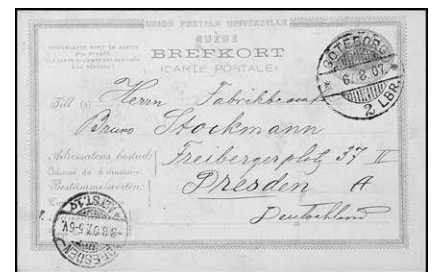 UNION POSTALE UNIVERSELLE
SUÈDE
BREFKORT
(CARTE POSTALE)
GÖTEBORG
6. 8. 07.
2 LBR.
Till (à) Herrn
Bruno Stockmann
Adressatens bostad:
Freibergerplatz 37 II
Adresse du destinataire:
Bestämmelseorten:
Dresden A
Deutschland
DRESDEN
8.8.07.5-6V.